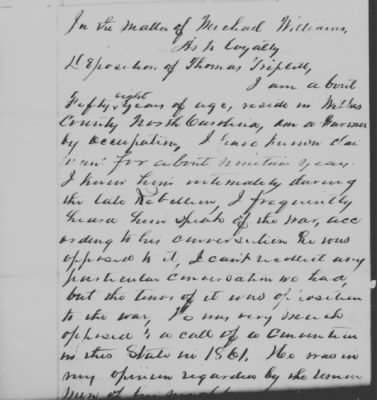 In the matter of Michael Williams,
As to loyalty
Deposition of Thomas Triplett,
I am about
Fifty eight years of age, reside in Wilkes
County North Carolina, am a Farmer
by occupation, I have known claimant
for about nineteen years.
I knew him intimately during
the late Rebellion, I frequently
heard him speak of the war, acc
ording to his conversation he was
opposed to it, I can't recollect any
particular conversation we had,
but the tenor of it was opposition
to the war, He was very much
opposed to a call of a convention
in this State in 1861. He was in
my opinion regarded by the Union
men of his